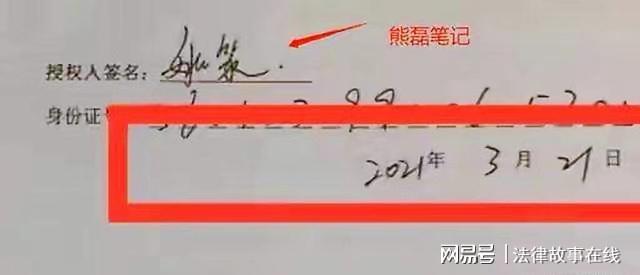 熊磊笔记
授权人签名：姚策.
身份证
2021年 3月21日
网易号 | 法律故事在线